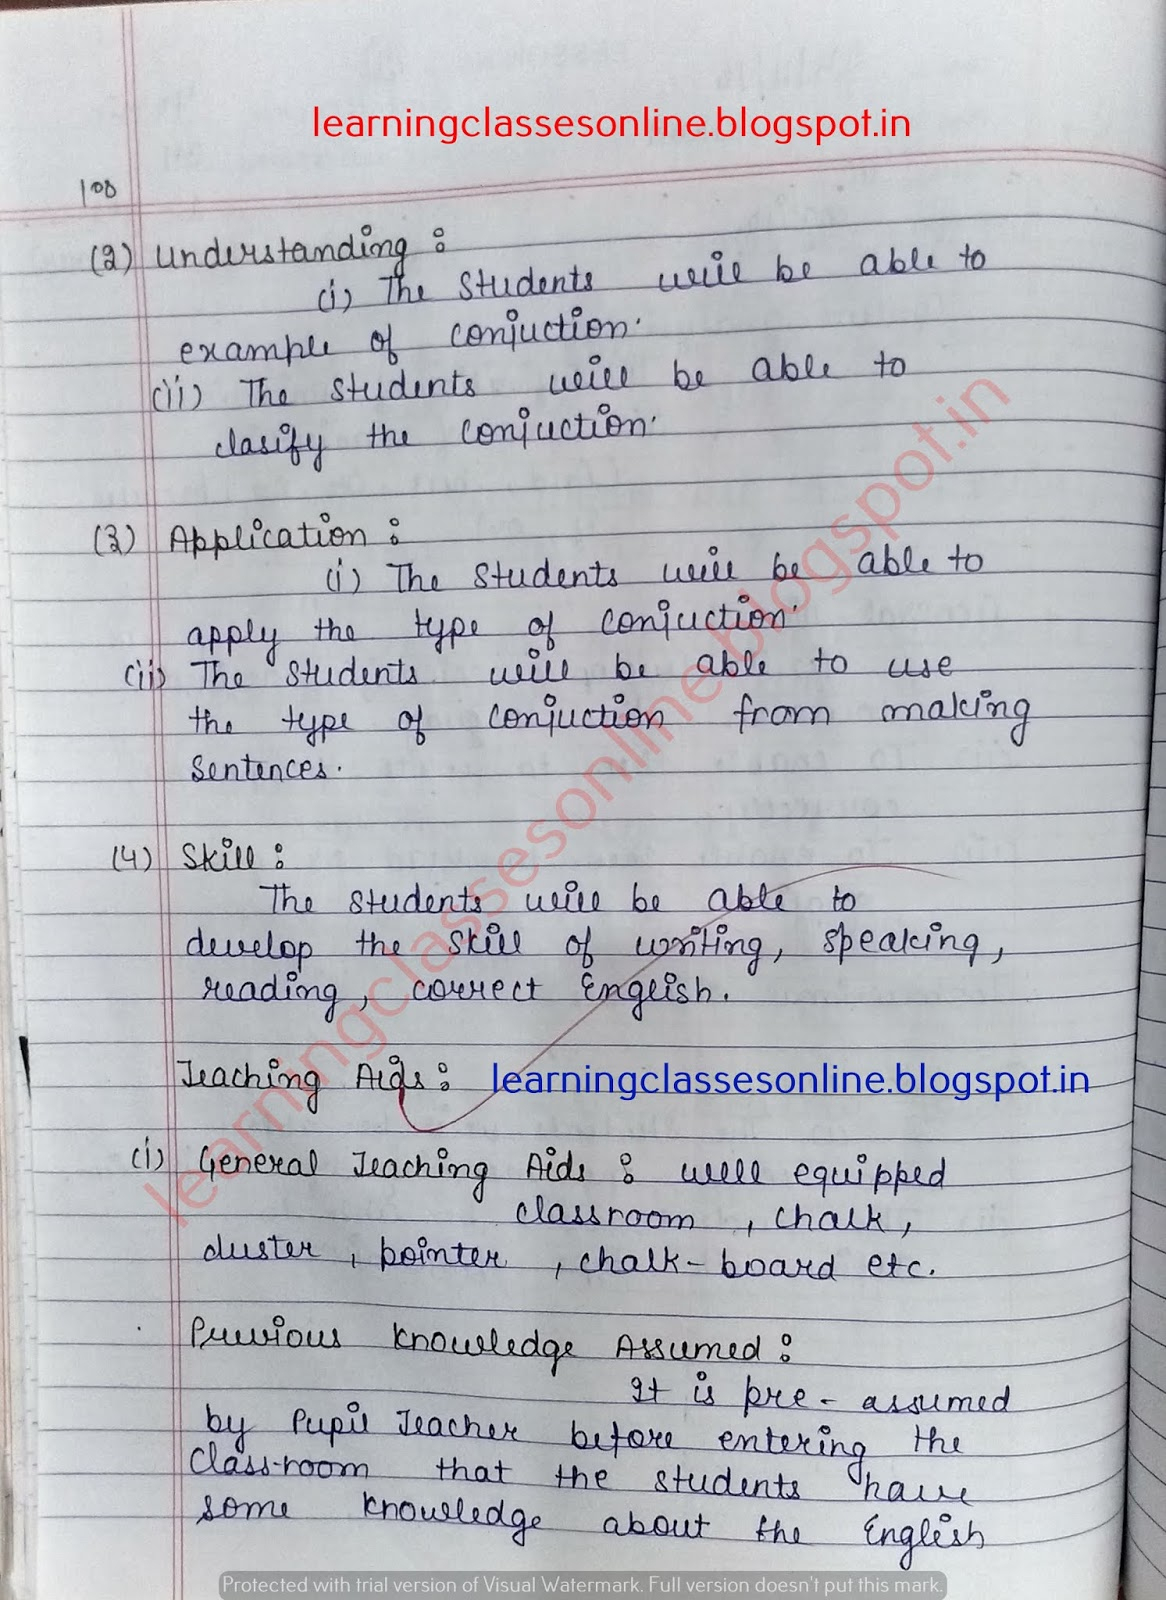 learningclassesonline.blogspot.in
100
(2) Understanding :
(i) The students will be able to
example of conjuction.
(ii) The students will be able to
clasify the conjuction.
(3) Application :
(i) The students will be able to
apply the type of conjuction.
(ii) The students will be able to use
the type of conjuction from making
sentences.
(4) Skill :
The students will be able to
develop the skill of writing, speaking,
reading, correct English.
Teaching Aids : learningclassesonline.blogspot.in
(i) General Teaching Aids : well equipped
classroom, chalk,
duster, pointer, chalk-board etc.
Previous knowledge Assumed :
It is pre-assumed
by Pupil Teacher before entering the
class-room that the students have
some knowledge about the English
learningclassesonline.blogspot.in
Protected with trial version of Visual Watermark. Full version doesn't put this mark.